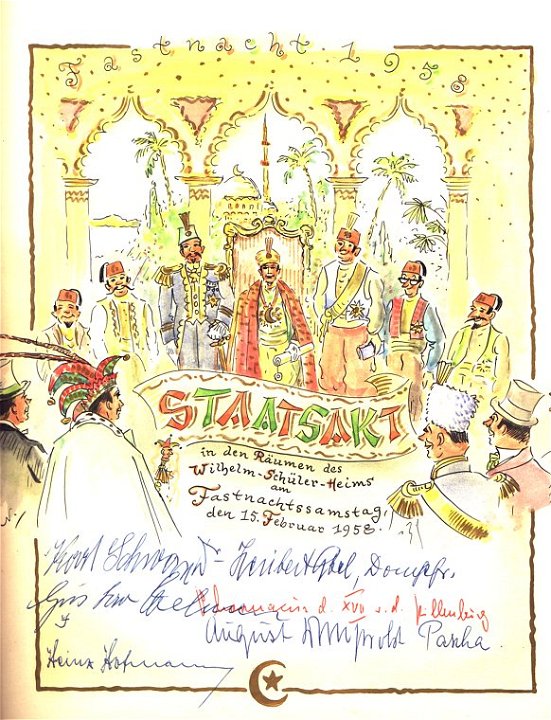 Fastnacht 1958
STAATSAKT
in den Räumen des
Wilhelm-Schüler-Heims
am
Fastnachtssamstag,
den 15. Februar 1958.
Karl Heribert
d. XVII v. d.
August Pascha
Heinz Hofmann